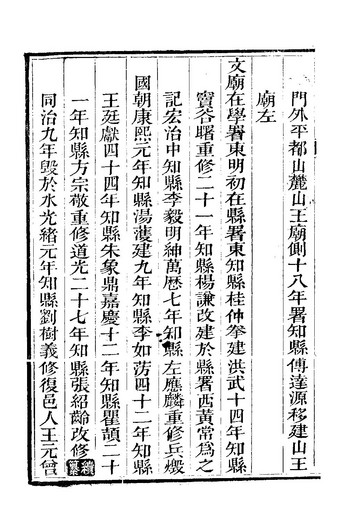 門外平都山麓山王廟側十八年署知縣傅達源移建山王
廟左
文廟在學署東明初在縣署東知縣桂仲拳建洪武十四年知縣
竇谷曙重修二十一年知縣楊謙改建於縣署西黃常為之
記宏治中知縣李毅明紳萬曆七年知縣左應麟重修兵燬
國朝康熙元年知縣湯濩建九年知縣李如茘四十二年知縣
王廷獻四十四年知縣朱象鼎嘉慶十二年知縣瞿頡二十
一年知縣方宗敬重修道光二十七年知縣張紹齡改修
同治九年毀於水光緒元年知縣劉樹義修復邑人王元曾